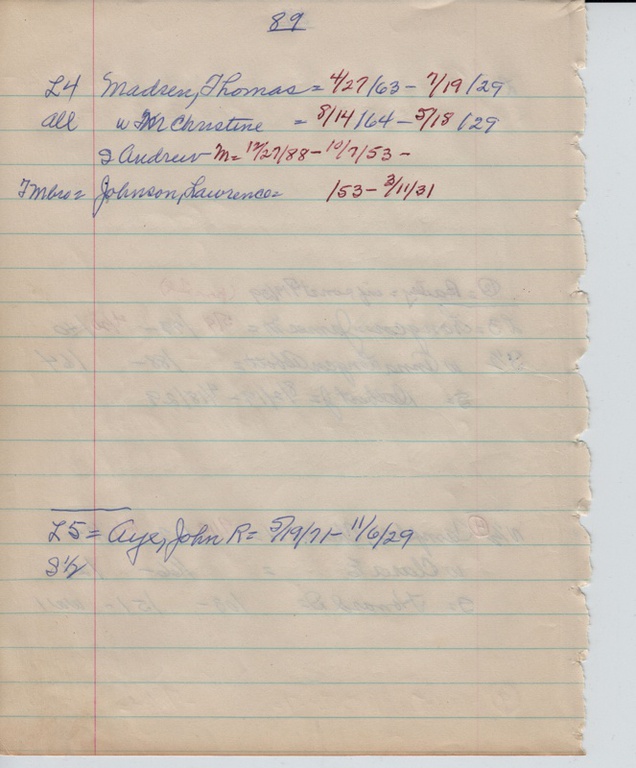 89
L4 Madsen, Thomas = 4/27/63 - 7/19/29
all w M Christine = 8/14/64 - 5/18/29
Andrew - M = 12/27/88 - 10/7/53 -
Johnson, Lawrence = /53 - 3/11/31
L5 = Aye, John R = 5/19/71 - 11/6/29
S½